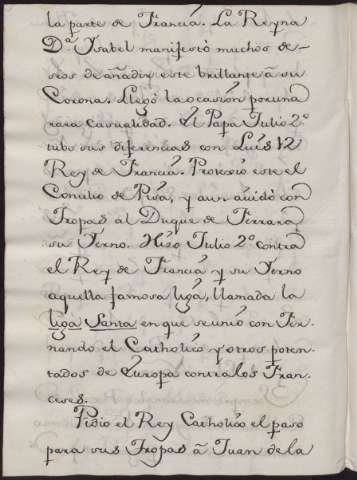 la parte de Francia. La Reyna
D.ª Ysabel manifestó muchos de-
seos de añadir este brillante à su
Corona. Llegó la ocasión por una
rara casualidad. El Papa Julio 2º
tubo sus diferencias con Luis 12
Rey de Francia. Protexió este el
Concilio de Pisa, y aun auidó con
Tropas al Duque de Ferrara
su Yerno. Hiso Julio 2º contra
el Rey de Francia y su Yerno
aquella famosa liga, llamada la
liga Santa en que se unió con Fer-
nando el Catholico y otros poten-
tados de Europa contra los Fran-
ceses.
Pidio el Rey Catholico el paso
para sus Tropas à Juan de la